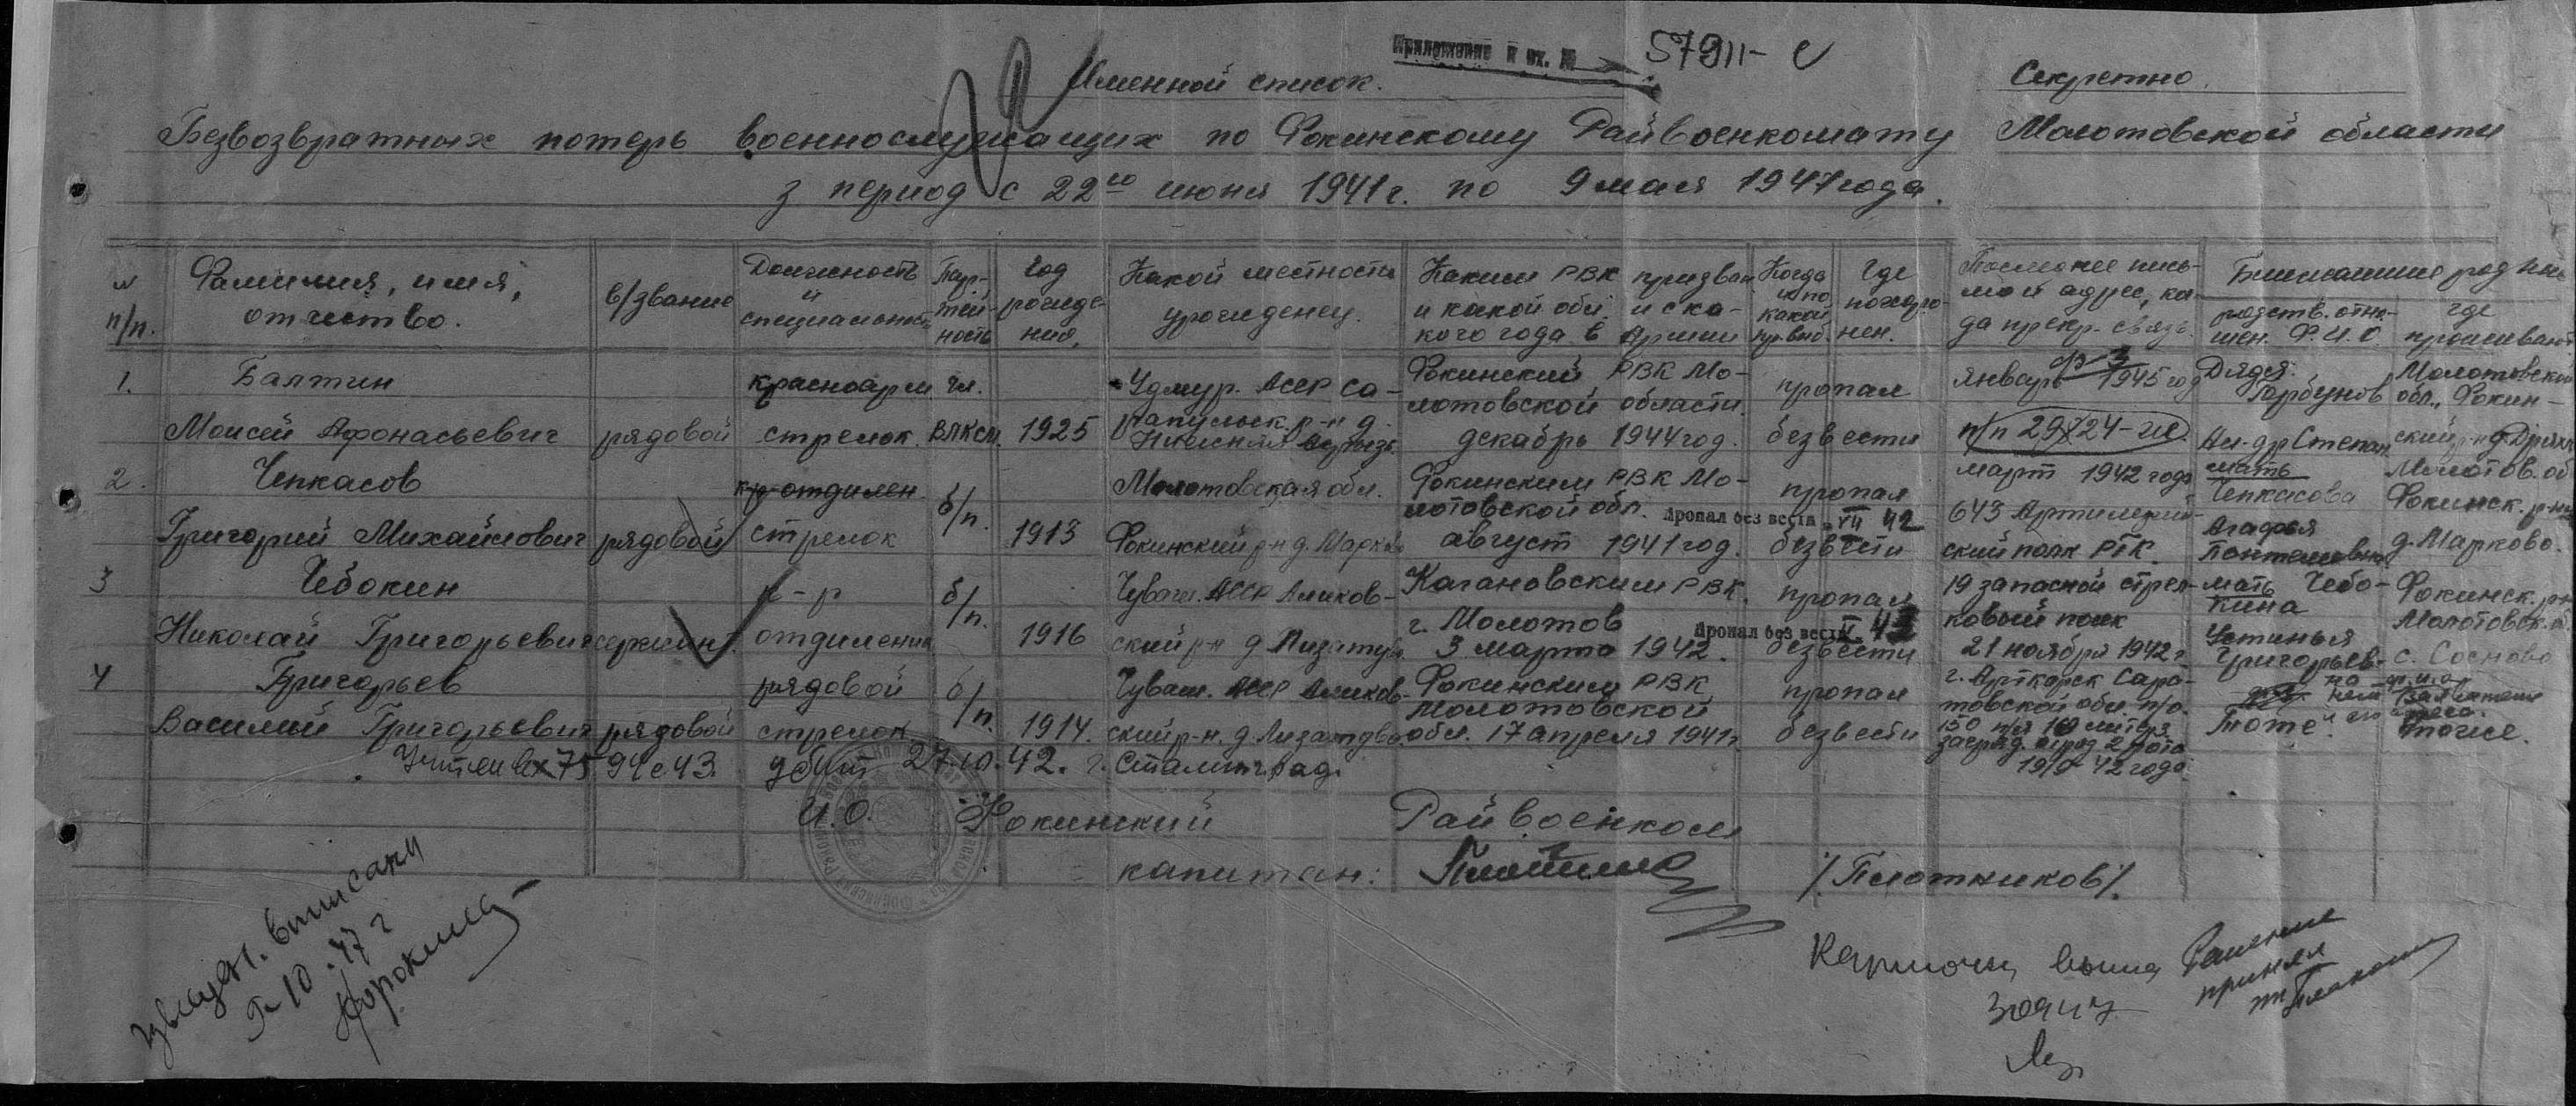 Приложение к вх. № 57911-с
Именной список.
Секретно.
Безвозвратных потерь военнослужащих по Фокинскому Райвоенкомату Молотовской области
з период с 22го июня 1941 г. по 9 мая 1947 года.
№ п/п.
Фамилия, имя, отчество.
в/звание
Должность и специальность
Партийность
Год рождения.
Какой местности уроженец.
Каким РВК призван и какой обл. и с какого года в Армии
Когда и по какой пр. выб.
Где похоронен.
Последнее письмо и адрес, когда прекр. связь
Ближайшие род
родств. отношен. Ф.И.О.
где проживают
1.
Балтин
Моисей Афонасьевич
рядовой
красноарм
стрелок.
чл.
ВЛКСМ.
1925
Удмур. АССР Са-
рапульск. р-н д.
Нижняя
Фокинский РВК Мо-
лотовской области.
декабрь 1944 год.
пропал
безвести
январь 1945 год
п/п 29824-
Дядя:
Горбунов
Ал-др Степан
Молотовский
обл., Фокин-
ский р-н д.
2.
Чепкасов
Григорий Михайлович
рядовой
к-р отдилен.
стрелок
б/п.
1913
Молотовская обл.
Фокинский р-н д. Марково
Фокинским РВК Мо-
лотовской обл.
август 1941 год.
пропал
Пропал без вести VII 42
безвести
март 1942 года
643 Артилерий-
ский полк РГК
мать
Чепкасова
Агафья
Пантелеевна
Молотов. об
Фокинск. р-н
д. Марково.
3
Чебокин
Николай Григорьевич
сержант.
к-р
отдиления
б/п.
1916
Чуваш. АССР Аликов-
ский р-н д.
Кагановским РВК.
г. Молотов
3 марта 1942.
пропал
Пропал без вести
безвести
19 запасной стрел-
ковый полк
21 ноября 1942 г
мать Чебо-
кина
Устинья
Григорьев-
на
Фокинск. р-н
Молотовск.
с. Сосново
4
Григорьев
Василий Григорьевич
рядовой
рядовой
стрелок
б/п.
1914.
Чуваш. АССР Аликов-
ский р-н. д.
Фокинским РВК
Молотовской
обл. 17 апреля 1941 г.
пропал
безвести
г. Арткарск Сара-
товской обл. п/о.
150 п/я 10 литера
2 рота
19/9 42 года.
Тоже.
тоже.
Учтен вх 7594с 43. убит 27.10.42. г. Сталинград.
И.О. Фокинский Райвоенком
капитан: /Плотников/.
вписаны
10.47 г
Карточки
30947
Решение
принял